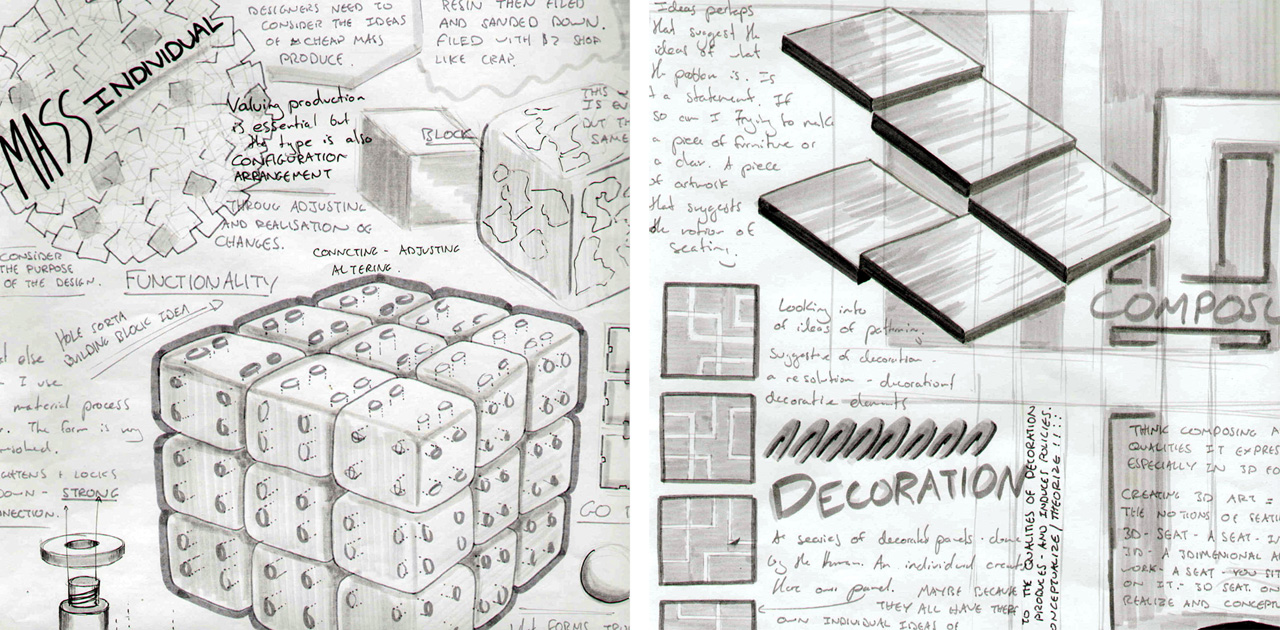 MASS INDIVIDUAL
DESIGNERS NEED TO
CONSIDER THE IDEAS
OF A CHEAP MASS
PRODUCE.
RESIN THEN FILED
AND SANDED DOWN.
FILED WITH $2 SHOP
LIKE CRAP.
Valuing production
is essential but
the type is also
CONFIGURATION
ARRANGEMENT
THROUG ADJUSTING
AND REALISATION OF
CHANGES.
BLOCK
THIS
IS
BUT
SAME
CONSIDER
THE PURPOSE
OF THE DESIGN.
FUNCTIONALITY
CONNCTING - ADJUSTING
ALTERING.
HOLE SORTA
BUILDING BLOCK IDEA
else
I use
material process
The form is very
TIGHTENS + LOCKS
DOWN - STRONG
CONNECTION.
GO
FORMS
Ideas perhaps
that suggest the
ideas of what
the position is. Is
a statement. If
so am I trying to make
a piece of furniture or
a chair. A piece
of artwork
that suggests
the notion of
seating.
COMPOS
Looking into
of ideas of patterning.
suggestive of decoration -
a resolution - decoration
decorative elements
DECORATION
A searies of decorated panels - done
by the human. An individual create
there own panel. MAYBE BECAUSE
THEY ALL HAVE THERE
OWN INDIVIDUAL IDEAS OF
TO THE QUALITIES OF DECORATION
PRODUCES - AND INDUCES POLICIES.
CONCEPTUALIZE / THEORIZE !!::
THINK COMPOSING A
QUALITIES IT EXPRES
ESPECIALLY IN 3D FO
CREATING 3D ART =
THE NOTIONS OF SEATI
3D - SEAT - A SEAT - I
3D - A 3DIMENSIONAL A
WORK - A SEAT - YOU SIT
ON IT - 3D SEAT. ON
REALIZE AND CONCEPT